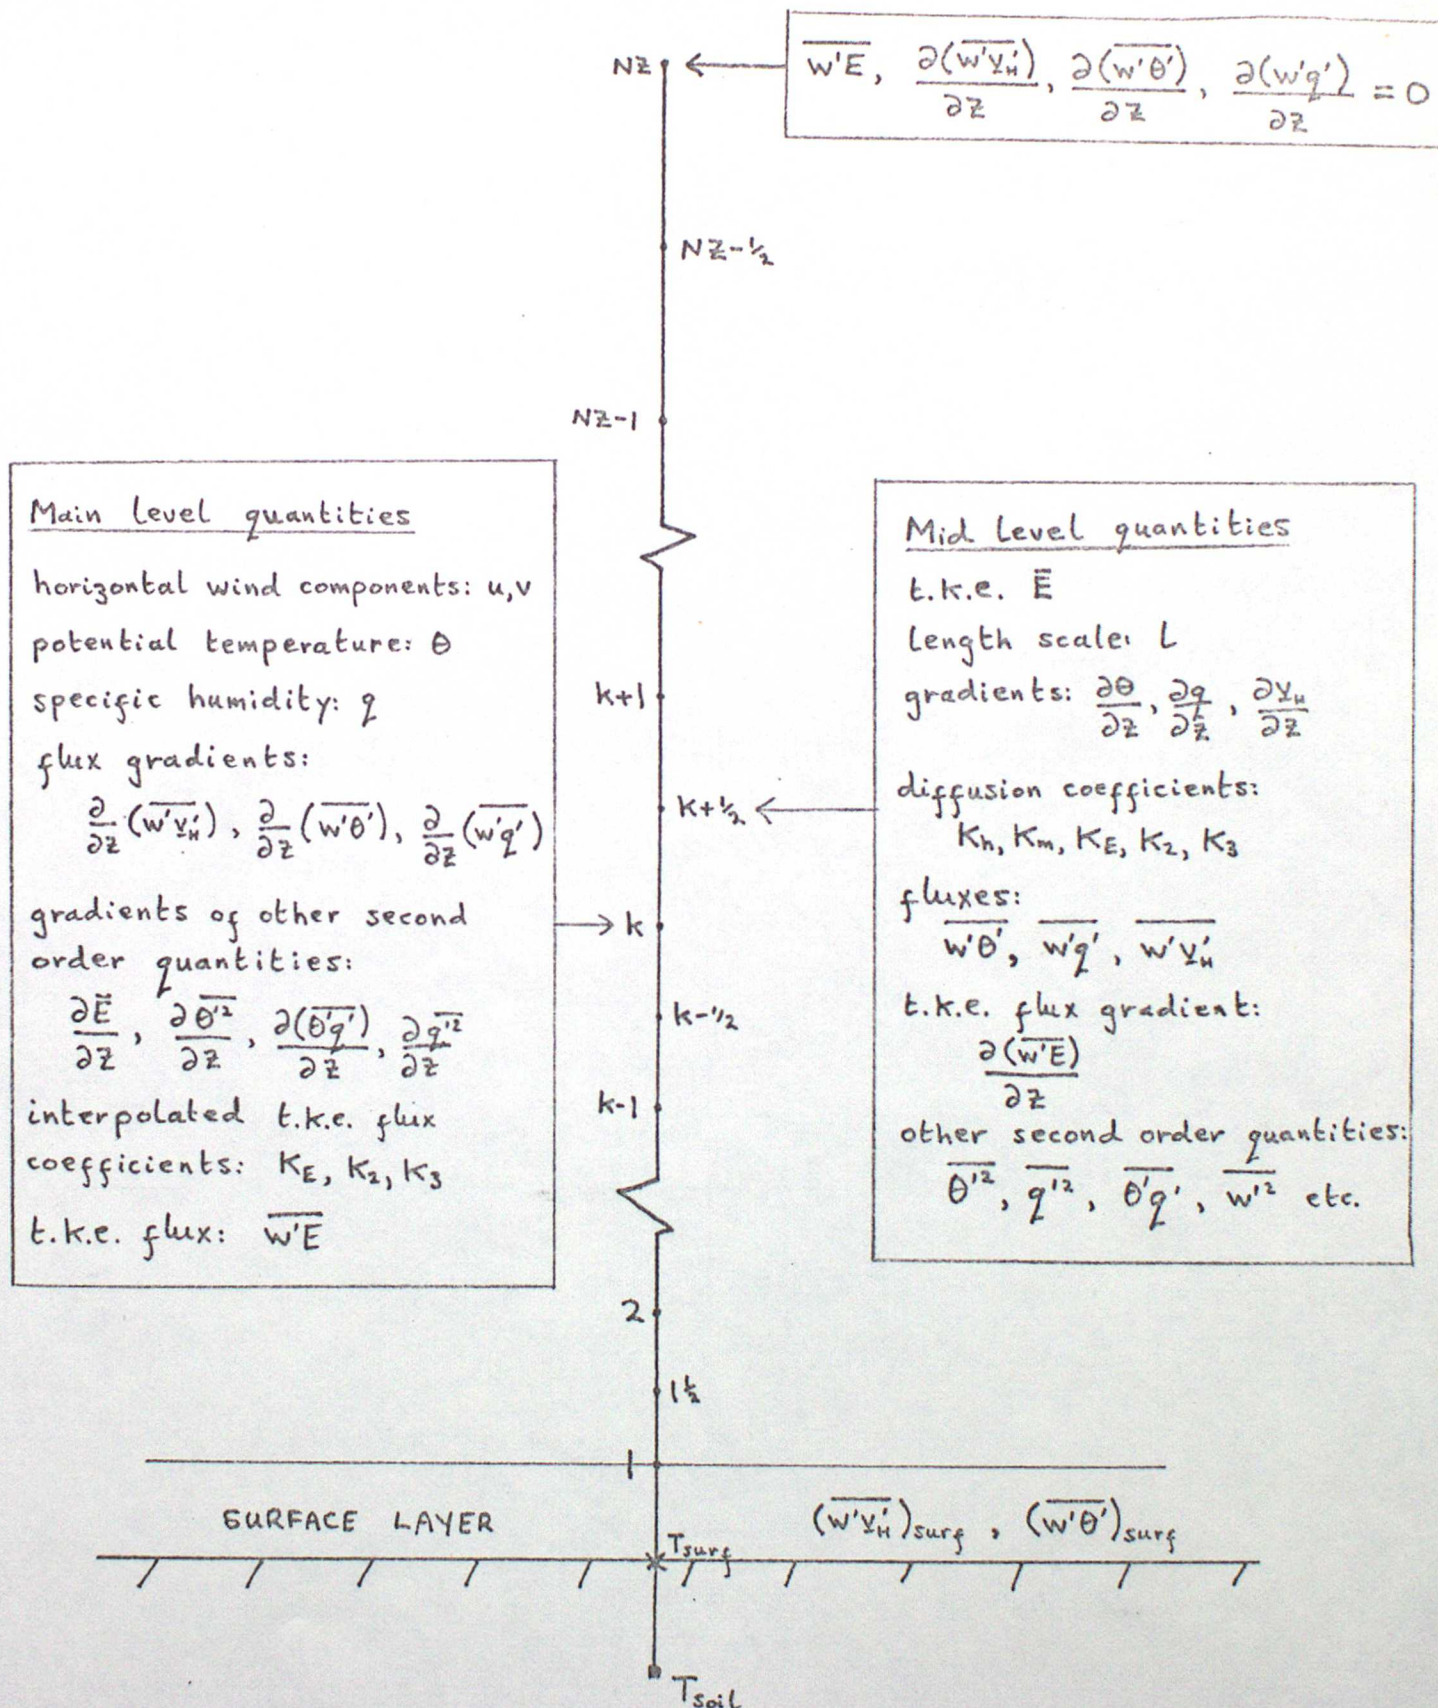 NZ
w'E̅, ∂(w'v̲'_H)/∂z, ∂(w'θ')/∂z, ∂(w'q')/∂z = 0
NZ-½
NZ-1
Main level quantities
horizontal wind components: u,v
potential temperature: θ
specific humidity: q
flux gradients:
∂/∂z (w'v̲'_H), ∂/∂z (w'θ'), ∂/∂z (w'q')
gradients of other second
order quantities:
∂E̅/∂z, ∂θ'²/∂z, ∂(θ'q')/∂z, ∂q'²/∂z
interpolated t.k.e. flux
coefficients: K_E, K_2, K_3
t.k.e. flux: w'E
k+1
k+½
k
k-½
k-1
Mid level quantities
t.k.e. E̅
length scale: L
gradients: ∂θ/∂z, ∂q/∂z, ∂v̲_H/∂z
diffusion coefficients:
K_h, K_m, K_E, K_2, K_3
fluxes:
w'θ', w'q', w'v̲'_H
t.k.e. flux gradient:
∂(w'E)/∂z
other second order quantities:
θ'², q'², θ'q', w'² etc.
2
1½
1
SURFACE LAYER
(w'v̲'_H)surf, (w'θ')surf
Tsurf
Tsoil